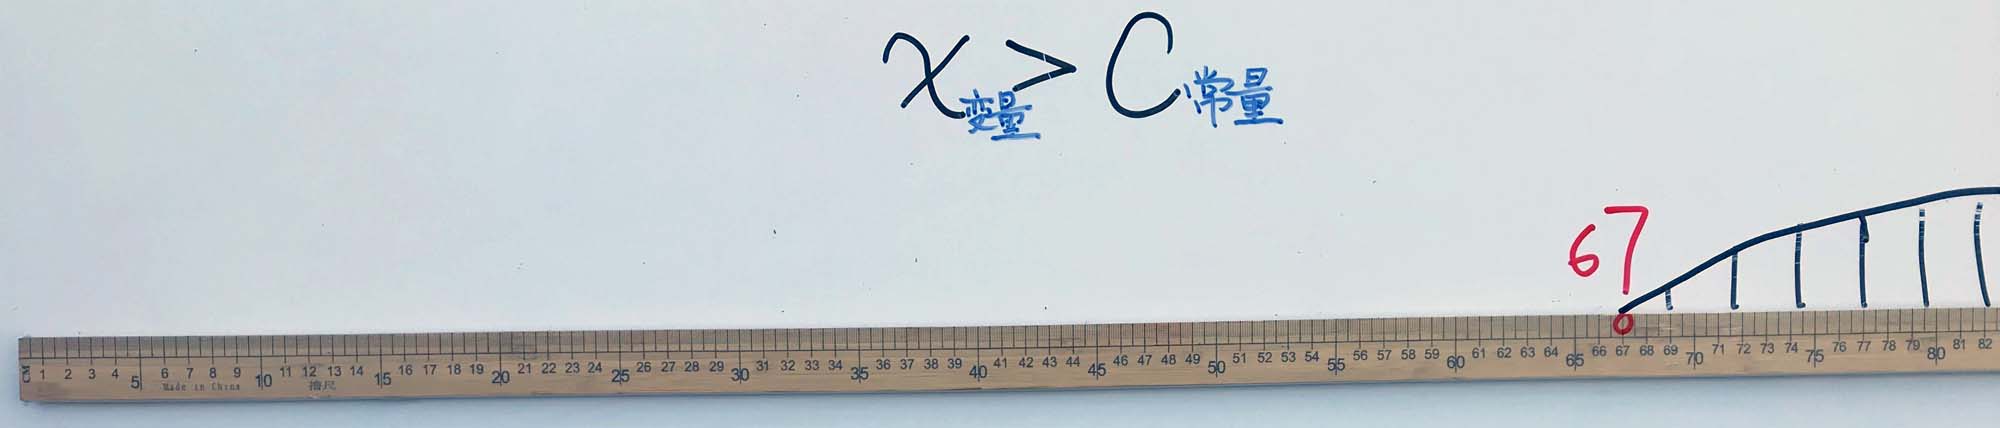 x > C
变量 常量
67
CM 1 2 3 4 5 6 7 8 9 10 11 12 13 14 15 16 17 18 19 20 21 22 23 24 25 26 27 28 29 30 31 32 33 34 35 36 37 38 39 40 41 42 43 44 45 46 47 48 49 50 51 52 53 54 55 56 57 58 59 60 61 62 63 64 65 66 67 68 69 70 71 72 73 74 75 76 77 78 79 80 81 82
Made in China